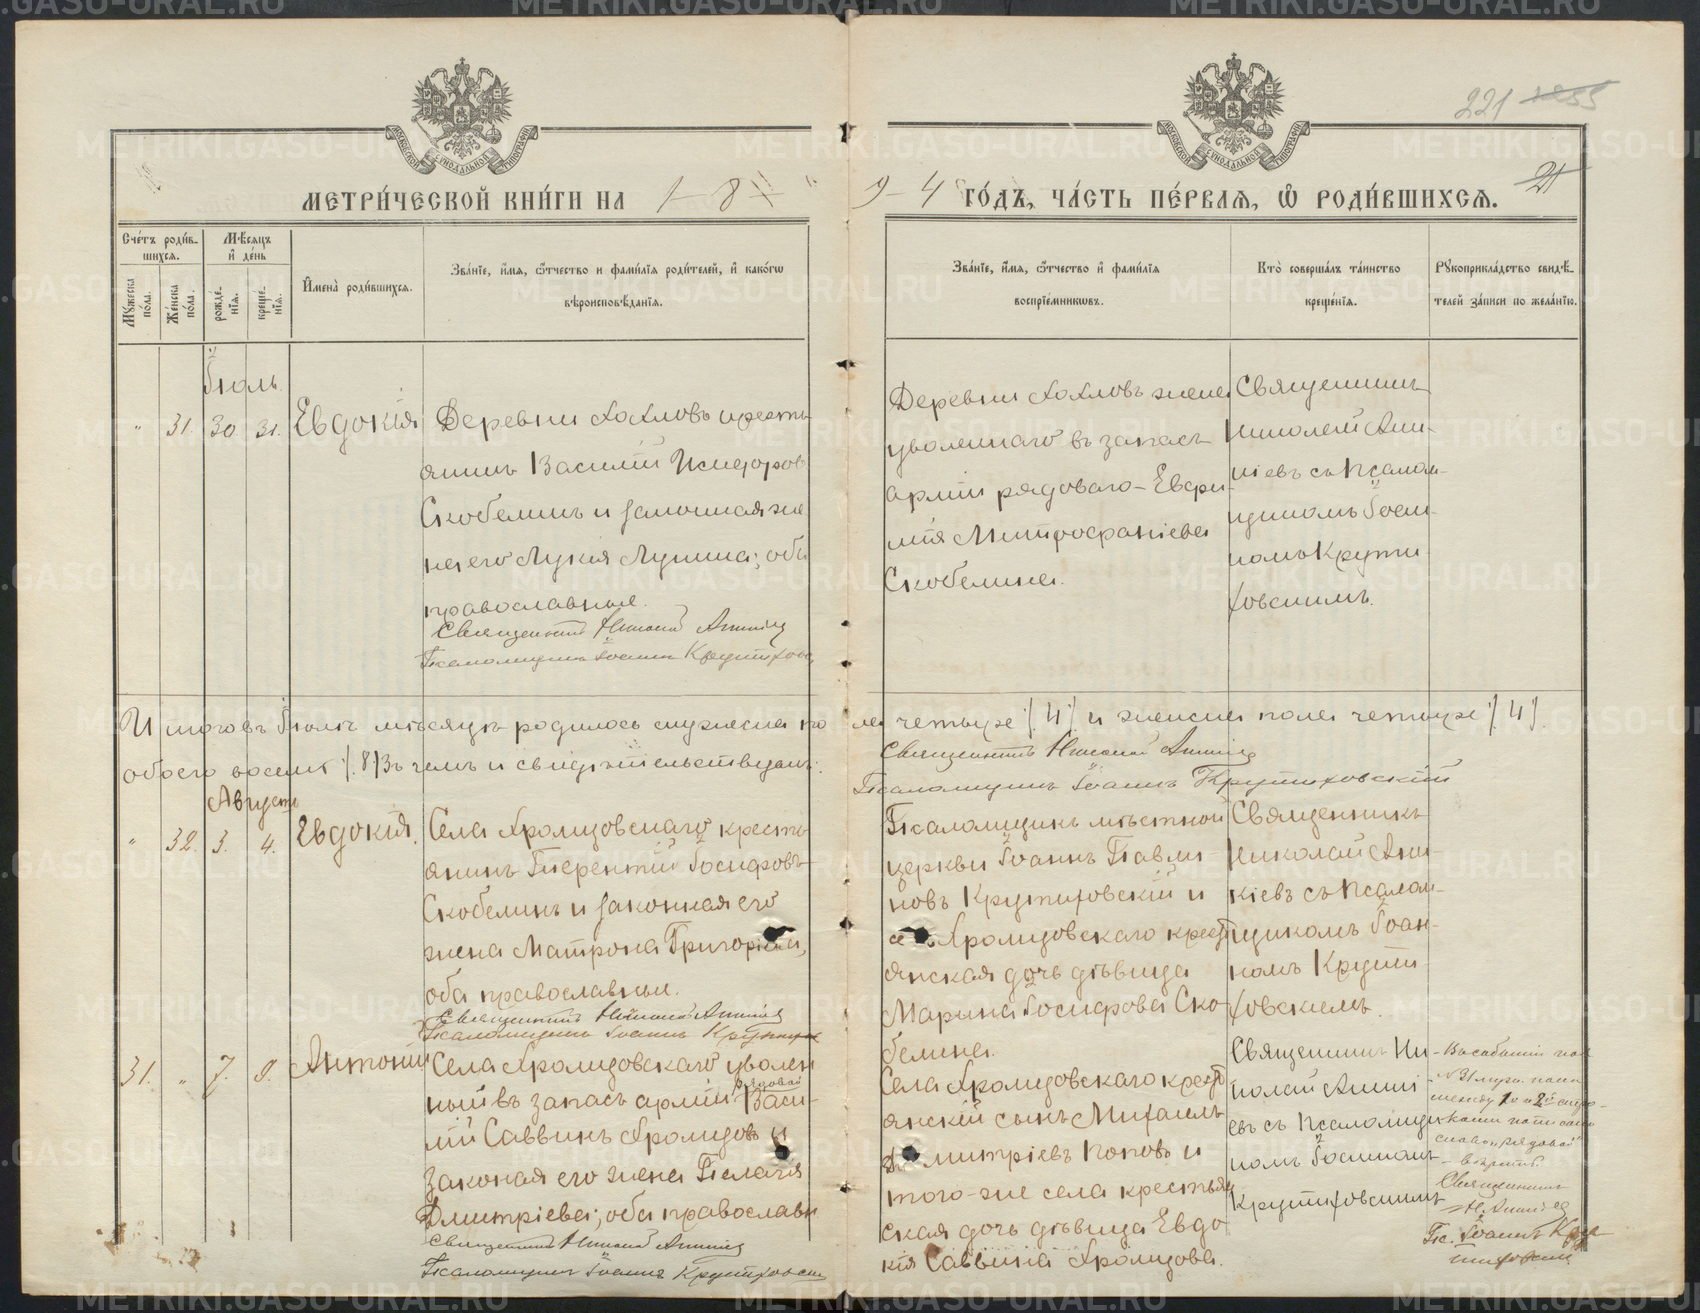 221 1255
МОСКОВСКОЙ СѴНОДАЛЬНОЙ ТИПОГРАФІИ
МОСКОВСКОЙ СѴНОДАЛЬНОЙ ТИПОГРАФІИ
МЕТРИ́ЧЕСКОЙ КНИ́ГИ НА 1 8 9 4 ГО́ДЪ, ЧА́СТЬ ПЕ́РВАЯ, Ѽ РОДИ́ВШИХСЯ. 21
Сче́тъ роди́в-
шихся.
Мѣ́сяцъ
и҆ де́нь
Мꙋ́жеска по́ла.
Же́нска по́ла.
рожде́нїя.
креще́нїя.
И҆мена̀ роди́вшихся.
Зва́нїе, и҆́мя, ѻ҆́тчество и фами́лїя роди́телей, и҆ како́гѡ
вѣроисповѣ́данїя.
Зва́нїе, и҆́мя, ѻ҆́тчество и҆ фами́лїя
воспрїе́мникѡвъ.
Кто̀ соверша́лъ та́инство
креще́нїя.
Рꙋкоприкла́дство свидѣ́-
телей за́писи по жела́нїю.
Іюль.
" 31. 30 31. Евдокія
Деревни Хохловъ кресть-
янинъ Василій Исидоров
Скобелинъ и законная же
на его Лукія Лупина; оба
православные.
Священникъ Николай Аникіев
Псаломщикъ Іоаннъ Крутиховс
Деревни Хохловъ жена
уволеннаго въ запасъ
арміи рядоваго – Евфи-
мія Митрофаніева
Скобелина.
Священникъ
Николай Ани-
кіевъ съ псалом-
щикомъ Іоан-
номъ Крути-
ховскимъ.
Итого въ Іюлѣ мѣсяцѣ родилось мужеска по ла четыре /4/ и женска пола четыре /4/.
обоего восемь /8/ Въ чемъ и свидѣтельствуемъ:
Священникъ Николай Аникіев
Псаломщикъ Іоаннъ Крутиховскій
Августъ
" 32. 3. 4. Евдокія.
Села Храмцовскаго кресть-
янинъ Терентій Іосифовъ
Скобелинъ и законная его
жена Матрона Григоріева,
оба православные.
Священникъ Николай Аникіев
Псаломщикъ Іоаннъ Крутихов
Псаломщикъ мѣстной
церкви Іоаннъ Павли-
новъ Крутиховскій и
села Храмцовскаго крест
янская дочь дѣвица
Марина Іосифова Ско
белина.
Священникъ
Николай Ани-
кіевъ съ псалом-
щикомъ Іоан-
номъ Крути-
ховскимъ.
31. " 7. 9. Антоній
Села Храмцовскаго уволен
рядовой
ный въ запасъ арміи Васи-
лій Саввинъ Храмцовъ и
законая его жена Пелагія
Дмитріева; оба православн
Священникъ Николай Аникіев
Псаломщикъ Іоаннъ Крутиховск
Села Храмцовскаго крест
янскій сынъ Михаилъ
Димитріевъ Поповъ и
того-же села крестьян
ская дочь дѣвица Евдо-
кія Саввина Храмцова.
Священникъ Ни-
колай Аникі-
евъ съ псаломщи
комъ Іоанномъ
Крутиховскимъ
Священникъ
Н. Аникіев
Пс. Іоаннъ Кру
тиховскій